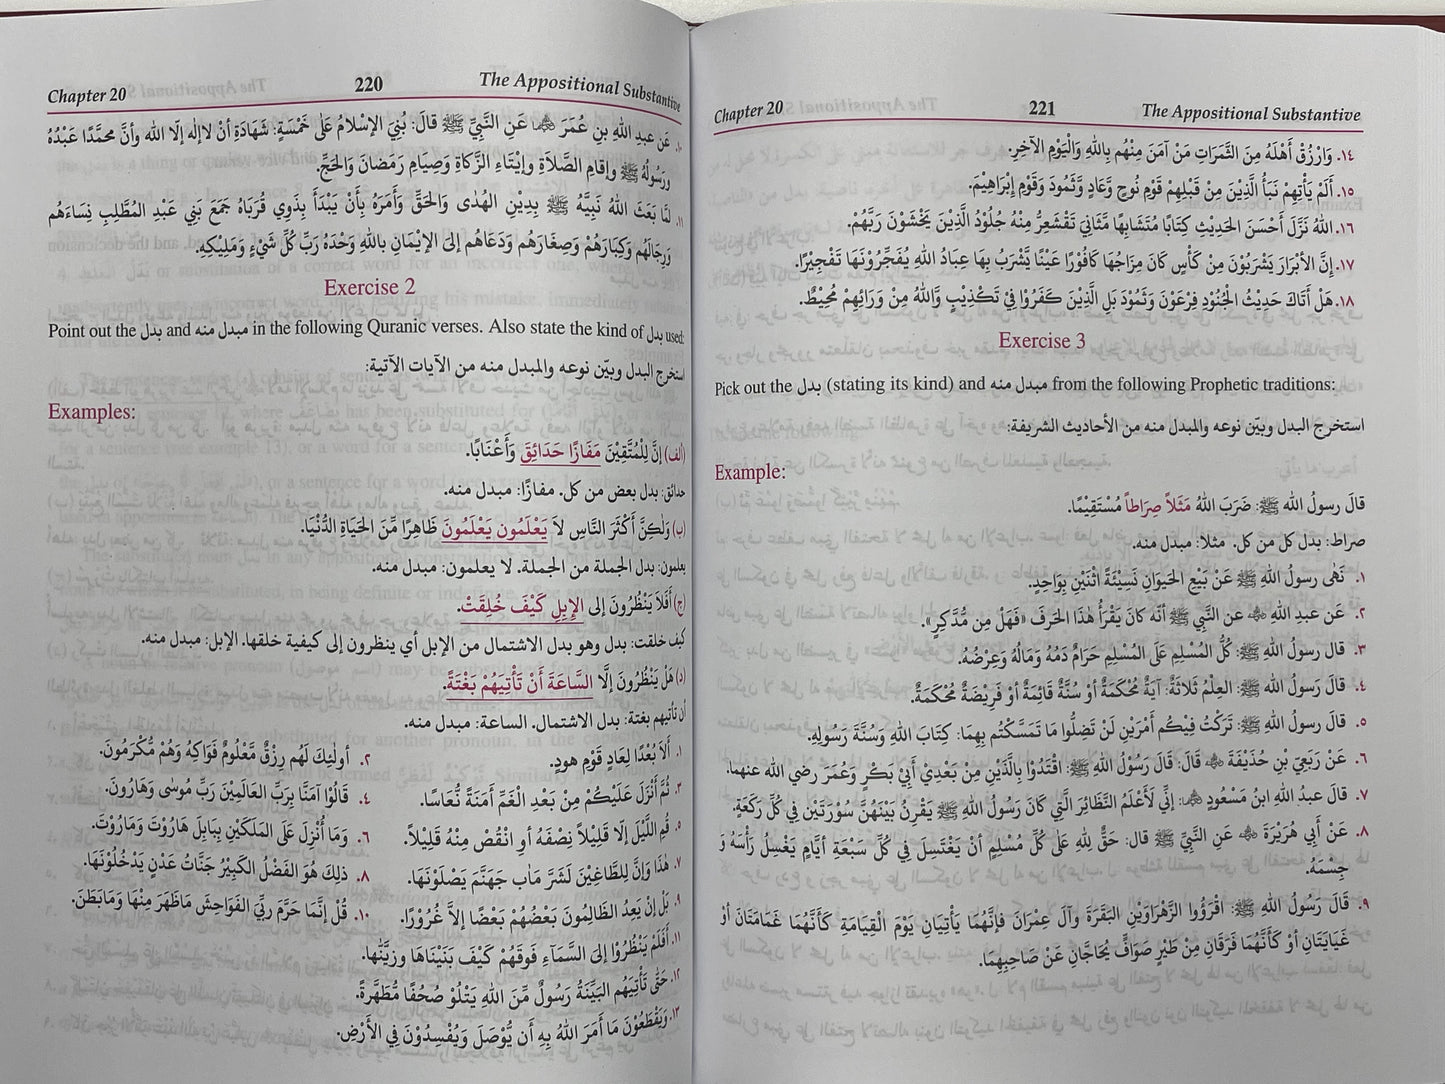 Chapter 20 220 The Appositional Substantive
١٠. عَن عبدِ اللهِ بنِ عُمَرَ عَنِ النَّبِيِّ ﷺ قالَ: بُنِيَ الإسْلامُ عَلَى خَمْسَةٍ: شَهَادَةِ أنْ لاإلٰه إلّا الله وأنَّ محمَّدًا عَبْدُهُ
ورَسُولُهُ ﷺ وإقامِ الصَّلاَةِ وإيْتَاءِ الزَّكاةِ وَصِيَامِ رَمَضَانَ وَالحَجِّ.
١١. لمَّا بَعَثَ اللهُ نَبِيَّهُ ﷺ بِدِيْنِ الهُدٰى وَالحَقِّ وَأَمَرَهُ بِأَنْ يَبْدَأَ بِذَوِي قُرَبَاهُ جَمَعَ بَنِي عَبْدِ المُطَّلِبِ نِسَاءَهُم
وَرِجَالَهُم وَكِبَارَهُمْ وَصِغَارَهُم وَدَعَاهُم إلىَ الإيْمَانِ بِاللهِ وَحْدَهُ رَبِّ كُلِّ شَيْءٍ وَمَلِيْكِهِ.
Exercise 2
Point out the بدل and مبدل منه in the following Quranic verses. Also state the kind of بدل used:
استخرج البدل وبيّن نوعه والمبدل منه من الآيات الآتية:
Examples:
(الف) إنَّ لِلْمُتَّقِيْنَ مَفَازًا حَدَائِقَ وَأَعْنَابًا.
حدائق: بدل بعض من كل. مفازًا: مبدل منه.
(ب) وَلٰكِنَّ أَكْثَرَ النَّاسِ لاَ يَعْلَمُون يَعْلَمُونَ ظَاهِرًا مِّنَ الحَيَاةِ الدُّنْيَا.
يعلمون: بدل الجملة من الجملة. لا يعلمون: مبدل منه.
(ج) أَفَلاَ يَنْظُرُونَ إلى الإبِلِ كَيْفَ خُلِقَتْ.
كيف خلقت: بدل وهو بدل الاشتمال من الإبل أي ينظرون إلى كيفية خلقها. الإبل: مبدل منه.
(د) هَلْ يَنْظُرُونَ إلَّا السَّاعَةَ أَنْ تَأْتِيَهُمْ بَغْتَةً.
أن تأتيهم بغتة: بدل الاشتمال. الساعة: مبدل منه.
١. أَلاَ بُعْدًا لِعَادٍ قَوْمِ هودٍ. ٢. أولٰئِكَ لَهُم رِزْقٌ مَعْلُومٌ فَوَاكِهُ وَهُمْ مُكْرَمُونَ.
٣. ثُمَّ أَنْزَلَ عَلَيْكُم مِنْ بَعْدِ الْغَمِّ أَمَنَةً نُّعَاسًا. ٤. قَالُوْا آمَنَّا بِرَبِّ العَالَمِيْنَ رَبِّ مُوسَى وَهَارُونَ.
٥. قُمِ اللَّيْلَ إلّا قَلِيْلاً نِصْفَهُ أوِ انْقُصْ مِنْهُ قَلِيْلاً. ٦. وَمَا أُنْزِلَ عَلَى المَلَكَيْنِ بِبَابِلَ هَارُوْتَ وَمَارُوْتَ.
٧. هٰذَا وَإنَّ لِلطَّاغِيْنَ لَشَرَّ مَاٰبٍ جَهَنَّمَ يَصْلَوْنَهَا. ٨. ذلِكَ هُوَ الفَضْلُ الكَبِيْرُ جَنَّاتُ عَدْنٍ يَدْخُلُوْنَهَا.
٩. بَلْ إنْ يَعِدُ الظَّالِمُونَ بَعْضُهُمْ بَعْضًا إلاَّ غُرُوْرًا. ١٠. قُلْ إنَّمَا حَرَّمَ رَبِّيَ الفَوَاحِشَ مَاظَهَرَ مِنْهَا وَمَابَطَنَ.
١١. أَفَلَمْ يَنْظُرُوْا إلىَ السَّمَآءِ فَوقَهُمْ كَيْفَ بَنَيْنَاهَا وزيَّنّٰها.
١٢. حَتّٰى تَأْتِيَهُم البَيِّنَةُ رَسُولٌ مِّنَ اللهِ يَتْلُوْ صُحُفًا مُطَهَّرَةً.
١٣. وَيَقْطَعُوْنَ مَا أَمَرَ اللهُ بِهِ أَن يُّوْصَلَ وَيُفْسِدُوْنَ فِي الأَرْضِ.
Chapter 20 221 The Appositional Substantive
١٤. وَارْزُقْ أَهْلَهُ مِنَ الثَّمَرَاتِ مَنْ آمَنَ مِنْهُم بِاللهِ وَالْيَوْمِ الآخِرِ.
١٥. أَلَمْ يَأْتِهِمْ نَبَأُ الَّذِيْنَ مِنْ قَبْلِهِمْ قَوْمِ نُوحٍ وَّعَادٍ وَّثَمُودَ وَقَوْمِ إبْرَاهِيْمَ.
١٦. اللهُ نَزَّلَ أَحْسَنَ الحَدِيْثِ كِتَابًا مُتَشَابِهًا مَّثَانِيَ تَقْشَعِرُّ مِنْهُ جُلُوْدُ الَّذِيْنَ يَخْشَوْنَ رَبَّهُمْ.
١٧. إنَّ الأَبْرَارَ يَشْرَبُوْنَ مِنْ كَأْسٍ كَانَ مِزَاجُهَا كَافُوْرًا عَيْنًا يَّشْرَبُ بِهَا عِبَادُ اللهِ يُفَجِّرُوْنَهَا تَفْجِيْرًا.
١٨. هَلْ أَتَاكَ حَدِيْثُ الْجُنُوْدِ فِرْعَوْنَ وَثَمُوْدَ بَلِ الَّذِيْنَ كَفَرُوْا فِيْ تَكْذِيْبٍ وَّاللهُ مِنْ وَرَائِهِمْ مُحِيْطٌ.
Exercise 3
Pick out the بدل (stating its kind) and مبدل منه from the following Prophetic traditions:
استخرج البدل وبيّن نوعه والمبدل منه من الأحاديث الشريفة:
Example:
قالَ رسولُ الله ﷺ: ضَرَبَ اللهُ مَثَلاً صِرَاطاً مُسْتَقِيْمًا.
صراط: بدل كل من كل. مثلا: مبدل منه.
١. نَهٰى رسولُ اللهِ ﷺ عَنْ بَيْعِ الحَيَوانِ نَسِيْئَةً اثْنَيْنِ بِوَاحِدٍ.
٢. عَن عبدِ اللهِ عن النَّبِي ﷺ أنّه كانَ يَقْرَأُ هٰذَا الحَرفَ «فَهَلْ مِن مُّدَّكِرٍ».
٣. قال رسولُ اللهِ ﷺ: كُلُّ المُسْلِمِ عَلَى المُسْلِمِ حَرَامٌ دَمُهُ وَمَالُهُ وَعِرْضُهُ.
٤. قالَ رَسولُ اللهِ ﷺ: العِلْمُ ثَلاثَةٌ: آيَةٌ مُحْكَمَةٌ أوْ سُنَّةٌ قَائِمَةٌ أوْ فَرِيْضَةٌ مُحْكَمَةٌ.
٥. قالَ رسولُ اللهِ ﷺ: تَرَكْتُ فِيْكُم أمْرَينِ لَنْ تَضِلُّوا مَا تَمَسَكْتُم بِهِمَا: كِتَابَ اللهِ وَسُنَّةَ رَسُولِهِ.
٦. عَنْ رَبَعِيْ بْنِ حُذَيْفَةَ قَالَ: قَالَ رَسُوْلُ اللهِ ﷺ: اقْتَدُوْا بِالَّذَيْنِ مِنْ بَعْدِيْ أَبِيْ بَكْرٍ وَعُمَرَ رضي الله عنهما.
٧. قالَ عبدُ اللهِ ابنُ مَسْعُودٍ: إنِّي لَأَعْلَمُ النَّظَائِرَ الَّتِي كَانَ رَسُولُ اللهِ ﷺ يَقْرِنُ بَيْنَهُنَّ سُوْرَتَيْنِ فِي كُلِّ رَكْعَةٍ.
٨. عَنْ أبِي هُرَيْرَةَ عَنِ النَّبِيِّ ﷺ قال: حَقٌّ لِلهِ عَلىٰ كُلِّ مُسْلِمٍ أنْ يَغْتَسِلَ فِي كُلِّ سَبْعَةِ أيَّامٍ يَغْسِلُ رَأْسَهُ وَ
جِسْمَهُ.
٩. قَالَ رَسُولُ اللهِ ﷺ: اقْرَؤُوا الزَّهْرَاوَينِ البَقَرَةَ وَآلَ عِمْرَانَ فإنَّهُمَا يَأْتِيَانِ يَوْمَ الْقِيَامَةِ كَأَنَّهُمَا غَمَامَتَانِ أوْ
غَيَايَتَانِ أوْ كَأَنَّهُمَا فَرَقَانِ مِنْ طَيْرٍ صَوَافَّ يُحَاجَّانِ عَنْ صَاحِبِهِمَا.